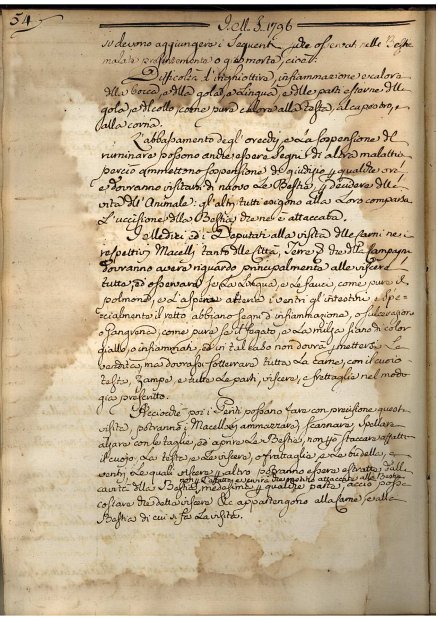 54
Nell. S. 1796
si devono aggiungere i seguenti osservati nelle Bestie
malate o già morte, cioè:
Difficoltà d'inghiottire, infiammazione e calore
della bocca, e della gola, e Lingua, e delle parti esterne della
gola, e del collo, come pure calore alla testa, al capo, e
alla corna.
L'abbassamento degl'orecchj, e La sospensione del
ruminare possono anche essere segni di altra malattia
perciò ammettono sospensione di giudizio p qualche ore
e dovranno visitarsi di nuovo Le Bestie, p decidere della
vita dell'Animale: gl'altri tutti esigono alla Loro comparsa
L'uccisione della Bestia che ne è attaccata.
I Medici, ed i Deputati alla visita delle carni ne i
respettivi Macelli tanto delle Città, Terre, che della Campagna
dovranno avere riguardo principalmente alle viscere
tutte, ed osservare se La Lingua, e Le fauci, come pure il
polmone, e L'aspera arteria i ventri gl'intestini e spe-
cialmente il retto abbiano segni d'infiammazione, o
o Cangrena, come pure se il fegato, e La milza siano di color
giallo, o infiammati, ed in tal caso non dovrà p mettersi La
vendita, ma dovrassi sotterrare tutta La carne, con il cuoio
testa, zampe, e tutte Le parti, viscere, e frattaglie nel modo
già prescritto.
Acciocchè poi i Periti possano fare con precisione questa
visita, potranno i Macellari ammazzare, scannare, spellare
alzare con le taglie, ed aprire Le Bestie, non staccare affatto
il cuojo, La testa, e Le viscere, o frattaglie, e Le budella, e
ventri, Le quali viscere, p altro potranno essere estratte dalla
cavità della Bestia, medesima p qualche parte, acciò possa
costare che dette viscere &c appartengono alla carne, e alla
Bestia di cui si fa La visita.